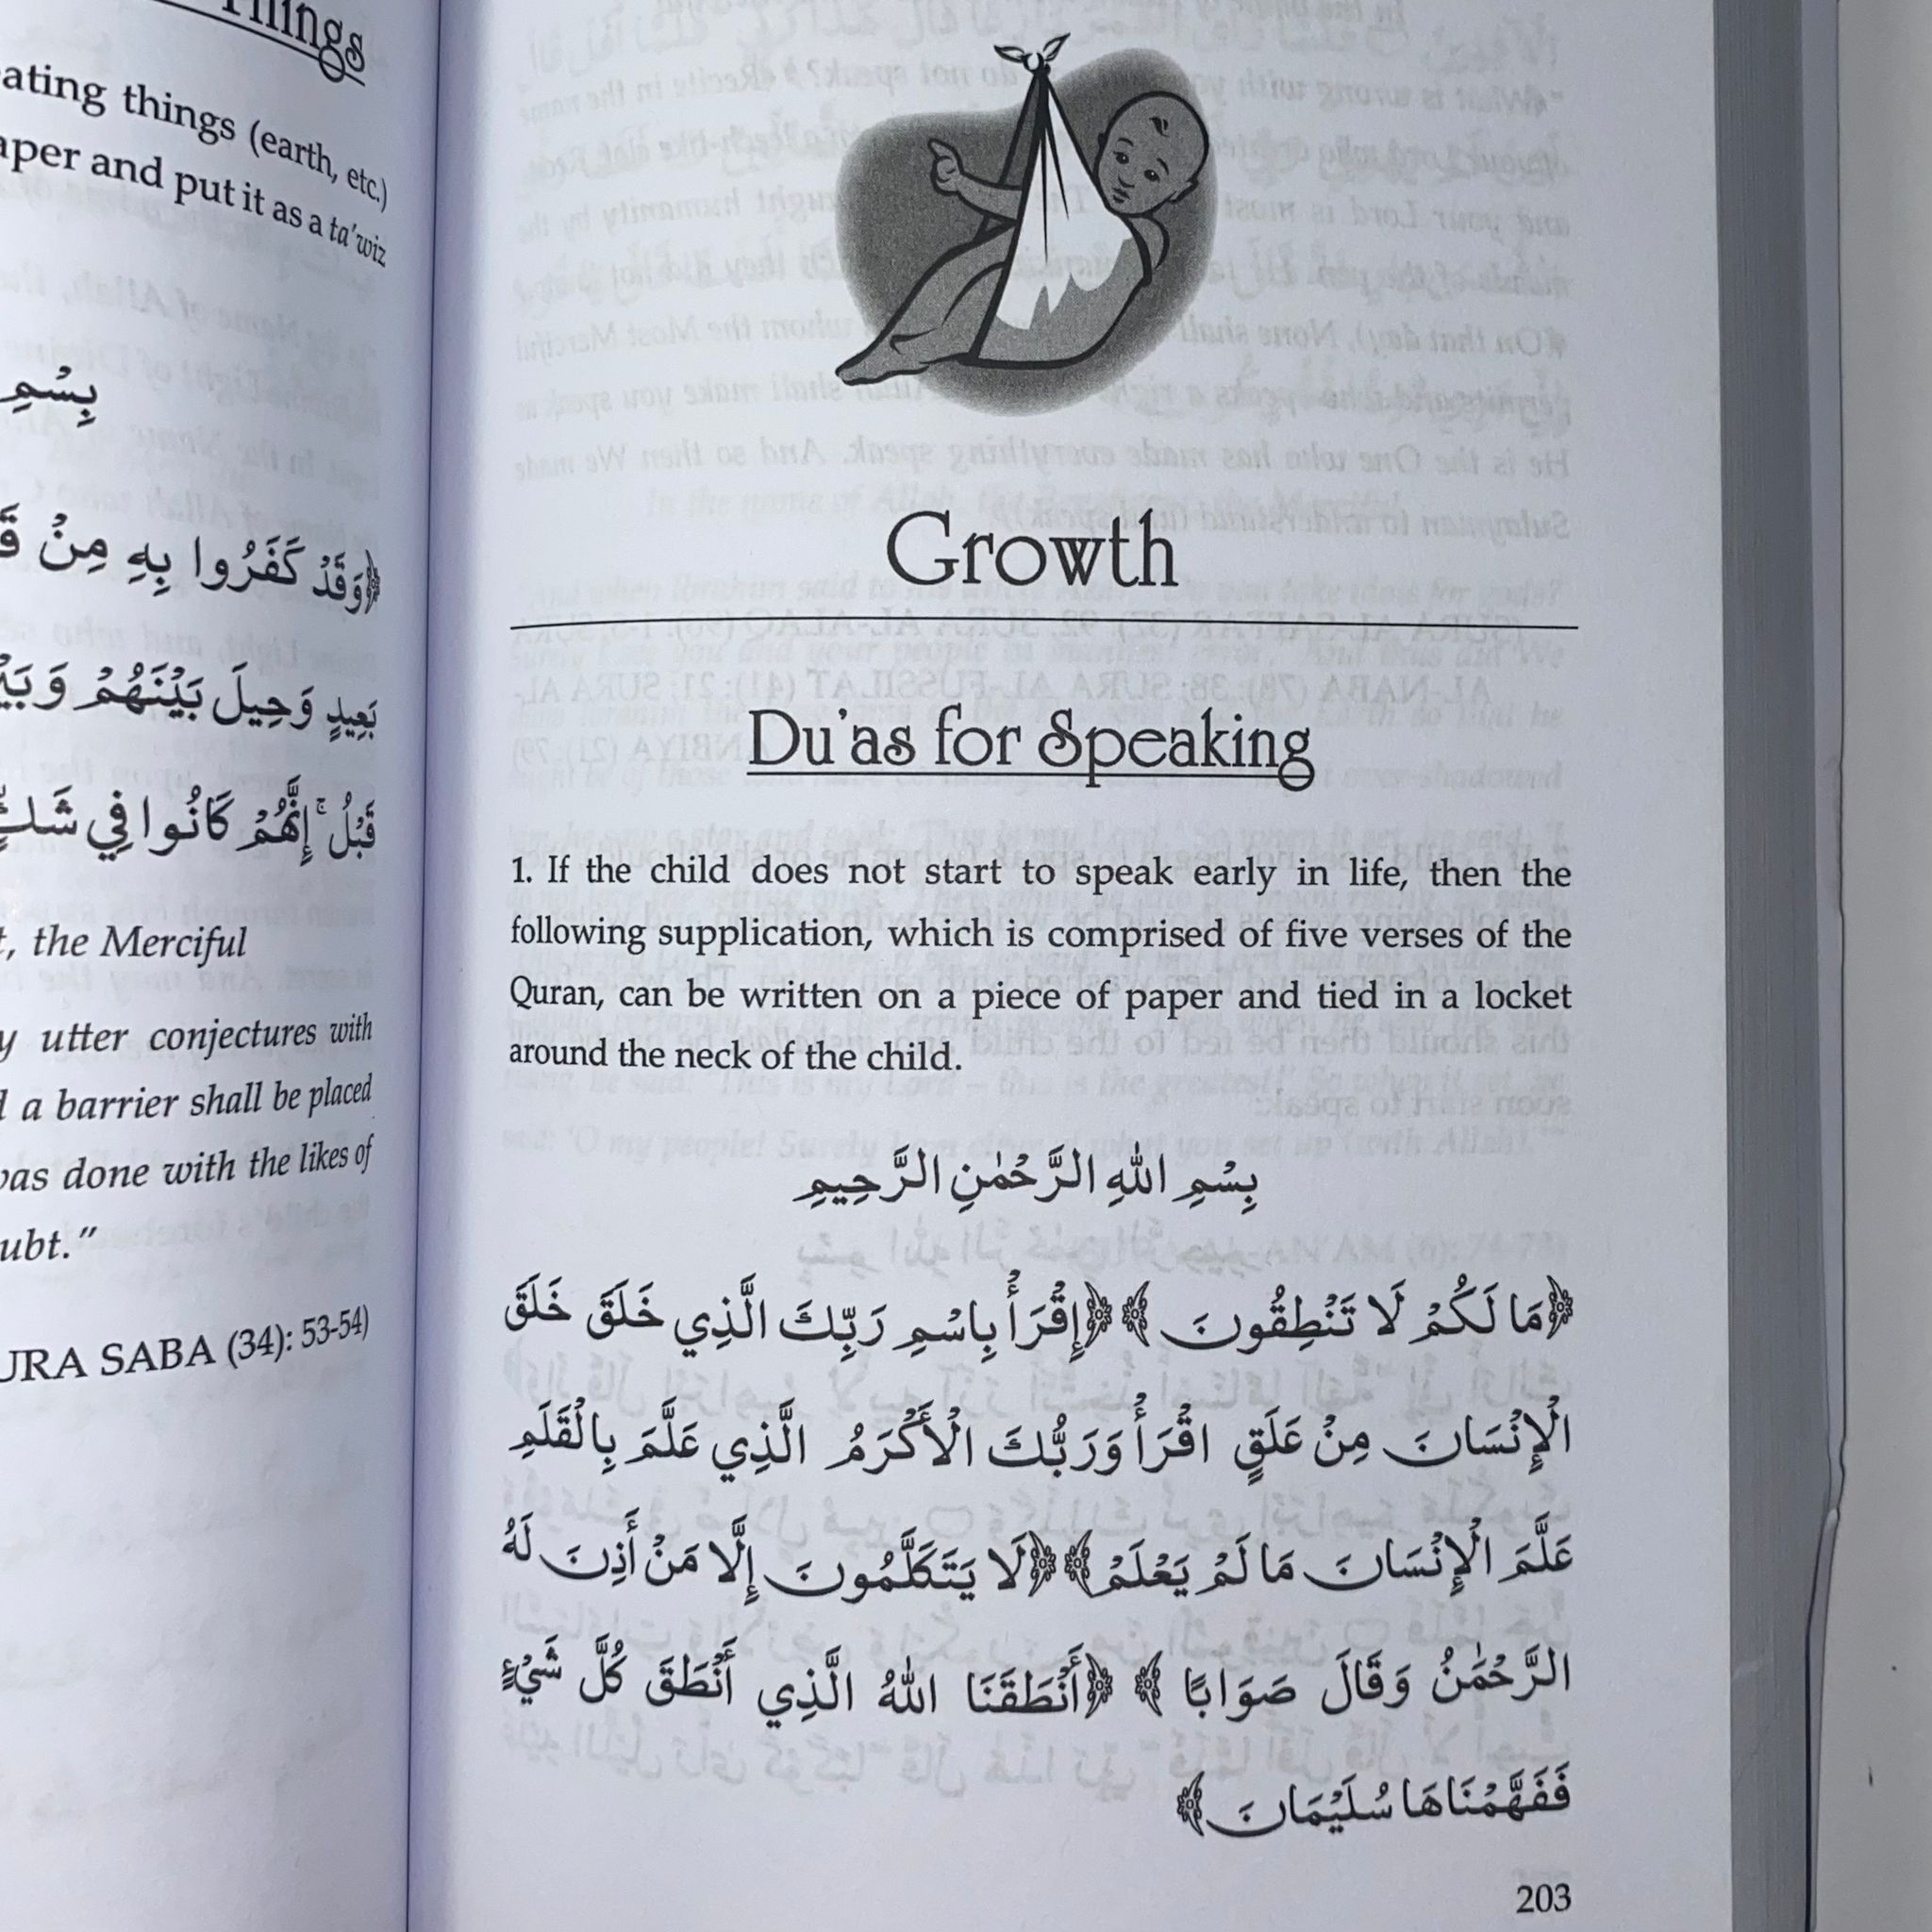 Things
ating things (earth, etc.)
aper and put it as a ta'wiz
بِسْمِ
﴿وَقَدْ كَفَرُوا بِهِ مِنْ
بَعِيدٍ وَحِيلَ بَيْنَهُمْ وَ
قَبْلُ ۚ إِنَّهُمْ كَانُوا فِي شَكٍّ
t, the Merciful
y utter conjectures with
a barrier shall be placed
was done with the likes of
ubt."
URA SABA (34): 53-54)
Growth
Du'as for Speaking
1. If the child does not start to speak early in life, then the
following supplication, which is comprised of five verses of the
Quran, can be written on a piece of paper and tied in a locket
around the neck of the child.
بِسْمِ اللهِ الرَّحْمٰنِ الرَّحِيمِ
﴿مَا لَكُمْ لَا تَنْطِقُونَ ﴾ ﴿إِقْرَأْ بِاسْمِ رَبِّكَ الَّذِي خَلَقَ خَلَقَ
الْإِنْسَانَ مِنْ عَلَقٍ اقْرَأْ وَرَبُّكَ الْأَكْرَمُ الَّذِي عَلَّمَ بِالْقَلَمِ
عَلَّمَ الْإِنْسَانَ مَا لَمْ يَعْلَمْ﴾ ﴿لَا يَتَكَلَّمُونَ إِلَّا مَنْ أَذِنَ لَهُ
الرَّحْمٰنُ وَقَالَ صَوَابًا ﴾ ﴿أَنْطَقَنَا اللهُ الَّذِي أَنْطَقَ كُلَّ شَيْءٍ
فَفَهَّمْنَاهَا سُلَيْمَانَ ﴾
203